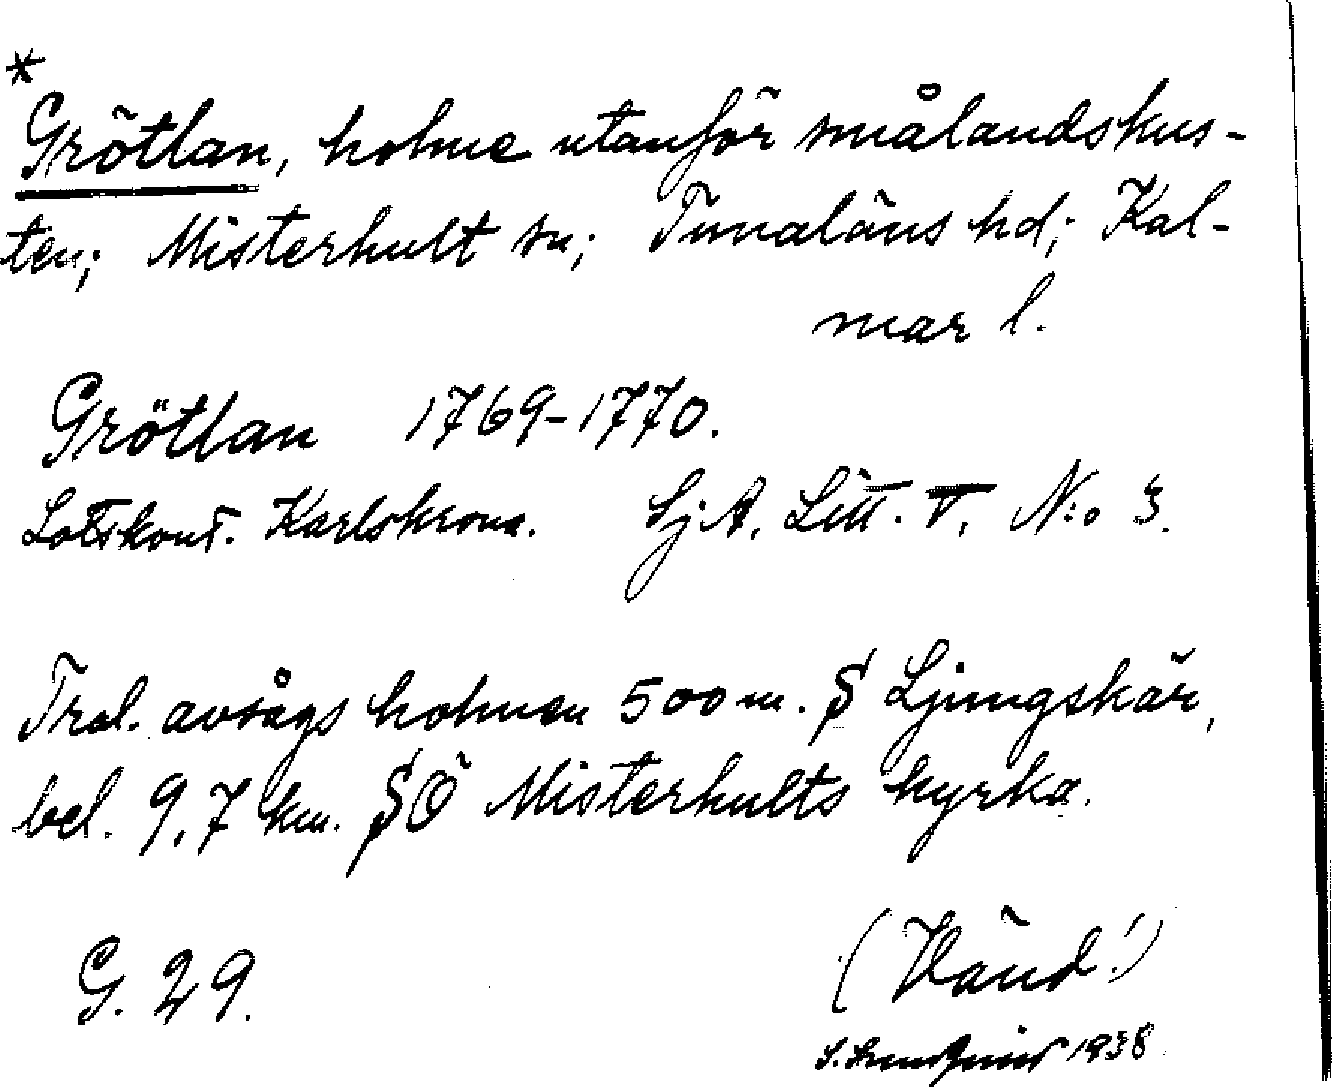 *
Grötlan, holme utanför smålandskus-
ten; Misterhult sn; Tunaläns hd; Kal-
mar l.
Grötlan 1769-1770.
Lotskont. Karlskrona. Sj.A. Litt. V. N:o 3.
Trol. avsågs holmen 500 m. S Ljungskär,
bel. 9,7 km. SÖ Misterhults kyrka.
G. 29.
(Vänd!)
1938